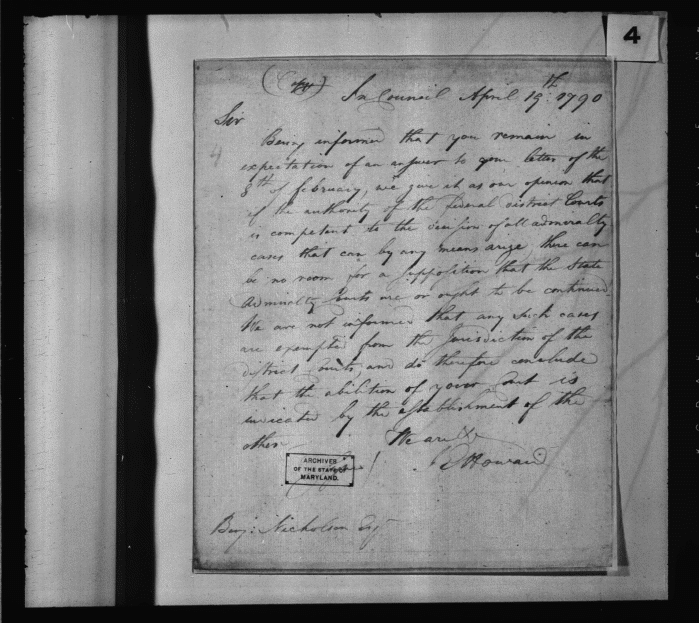 4
In Council April 19th 1790
Sir
4
Being informed that you remain in
expectation of an answer to your letter of the
8th of february, we give it as our opinion that
if the authority of the federal district Courts
is competent to the decision of all admiralty
cases that can by any means arize, there can
be no room for a supposition that the State
Admiralty Courts are or ought to be continued.
We are not informed that any such cases
are exempted from the Jurisdiction of the
district Courts, and do therefore conclude
that the abilition of your Court is
indicated by the establishment of the
other
We are &c
Howard
ARCHIVES
OF THE STATE OF
MARYLAND.
Benj: Nicholson Esqr